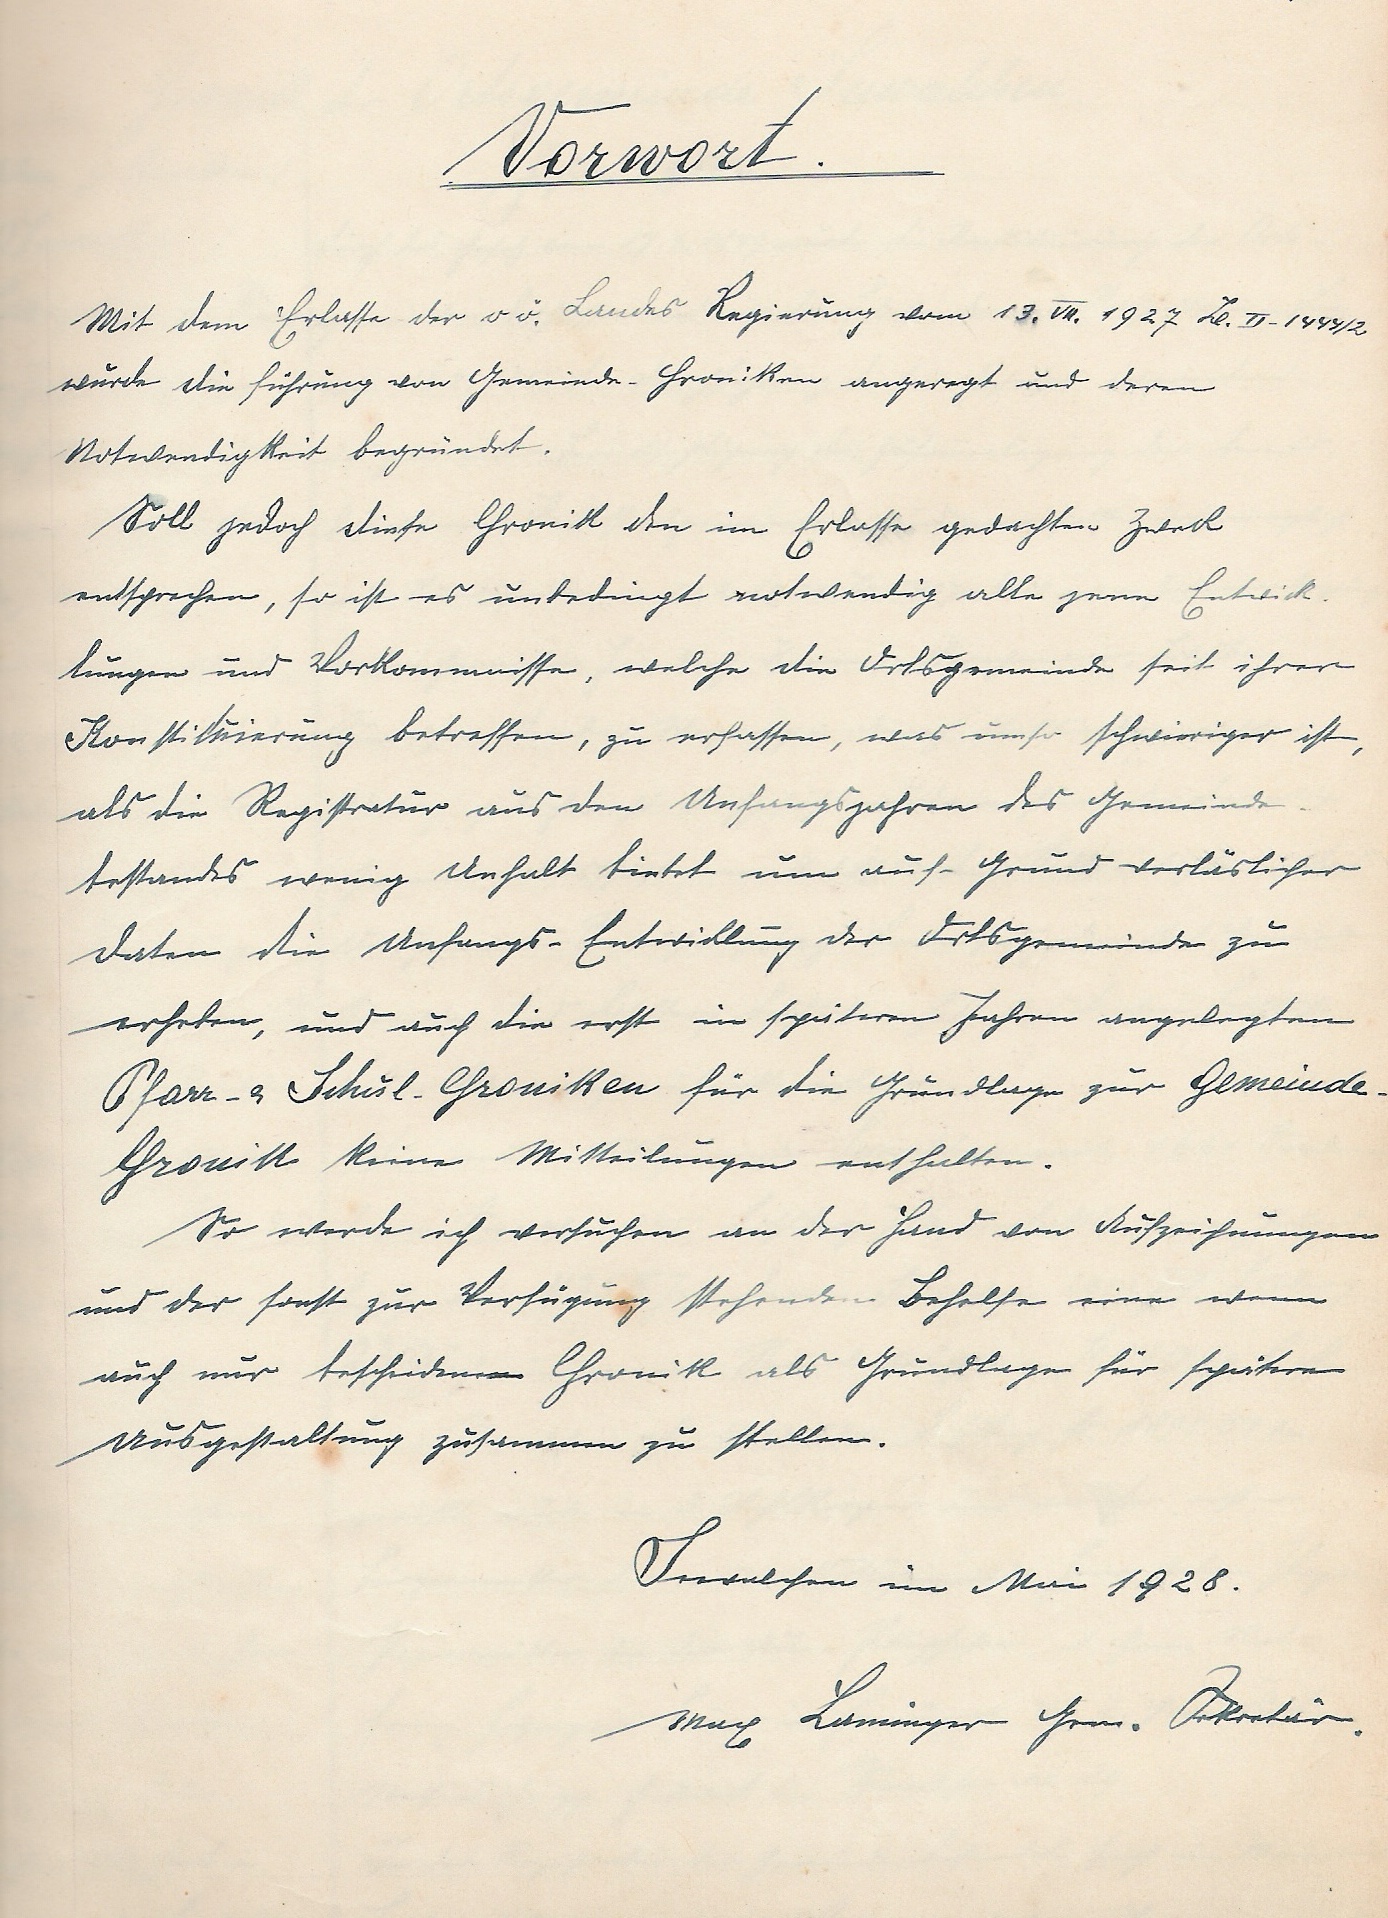 Vorwort.
Mit dem Erlasse der o ö. Landes Regierung vom 13. VII. 1927 Zl. II-1444/2
wurde die Führung von Gemeinde-Chroniken angeregt und deren
Notwendigkeit begründet.
Soll jedoch diese Chronik den im Erlasse gedachten Zweck
entsprechen, so ist es unbedingt notwendig alle jene Entwick-
lungen und Vorkommnisse, welche die Ortsgemeinde seit ihrer
Konstituierung betreffen, zu erfassen, was umso schwieriger ist,
als die Registratur aus den Anfangsjahren des Gemeinde-
bestandes wenig Anhalt bietet um auf Grund verläslicher
Daten die Anfangs-Entwicklung der Ortsgemeinde zu
erheben, und auch die erst in späteren Jahren angelegten
Pfarr- & Schul-Chroniken für die Grundlage zur Gemeinde-
Chronik keine Mitteilungen enthalten.
So werde ich versuchen an der Hand von Aufzeichnungen
und der sonst zur Verfügung stehenden Behelfe eine wenn
auch nur bescheidene Chronik als Grundlage für spätere
Ausgestaltung zusammen zu stellen.
Seewalchen im Mai 1928.
Max Laminger Gem. Sekretär.